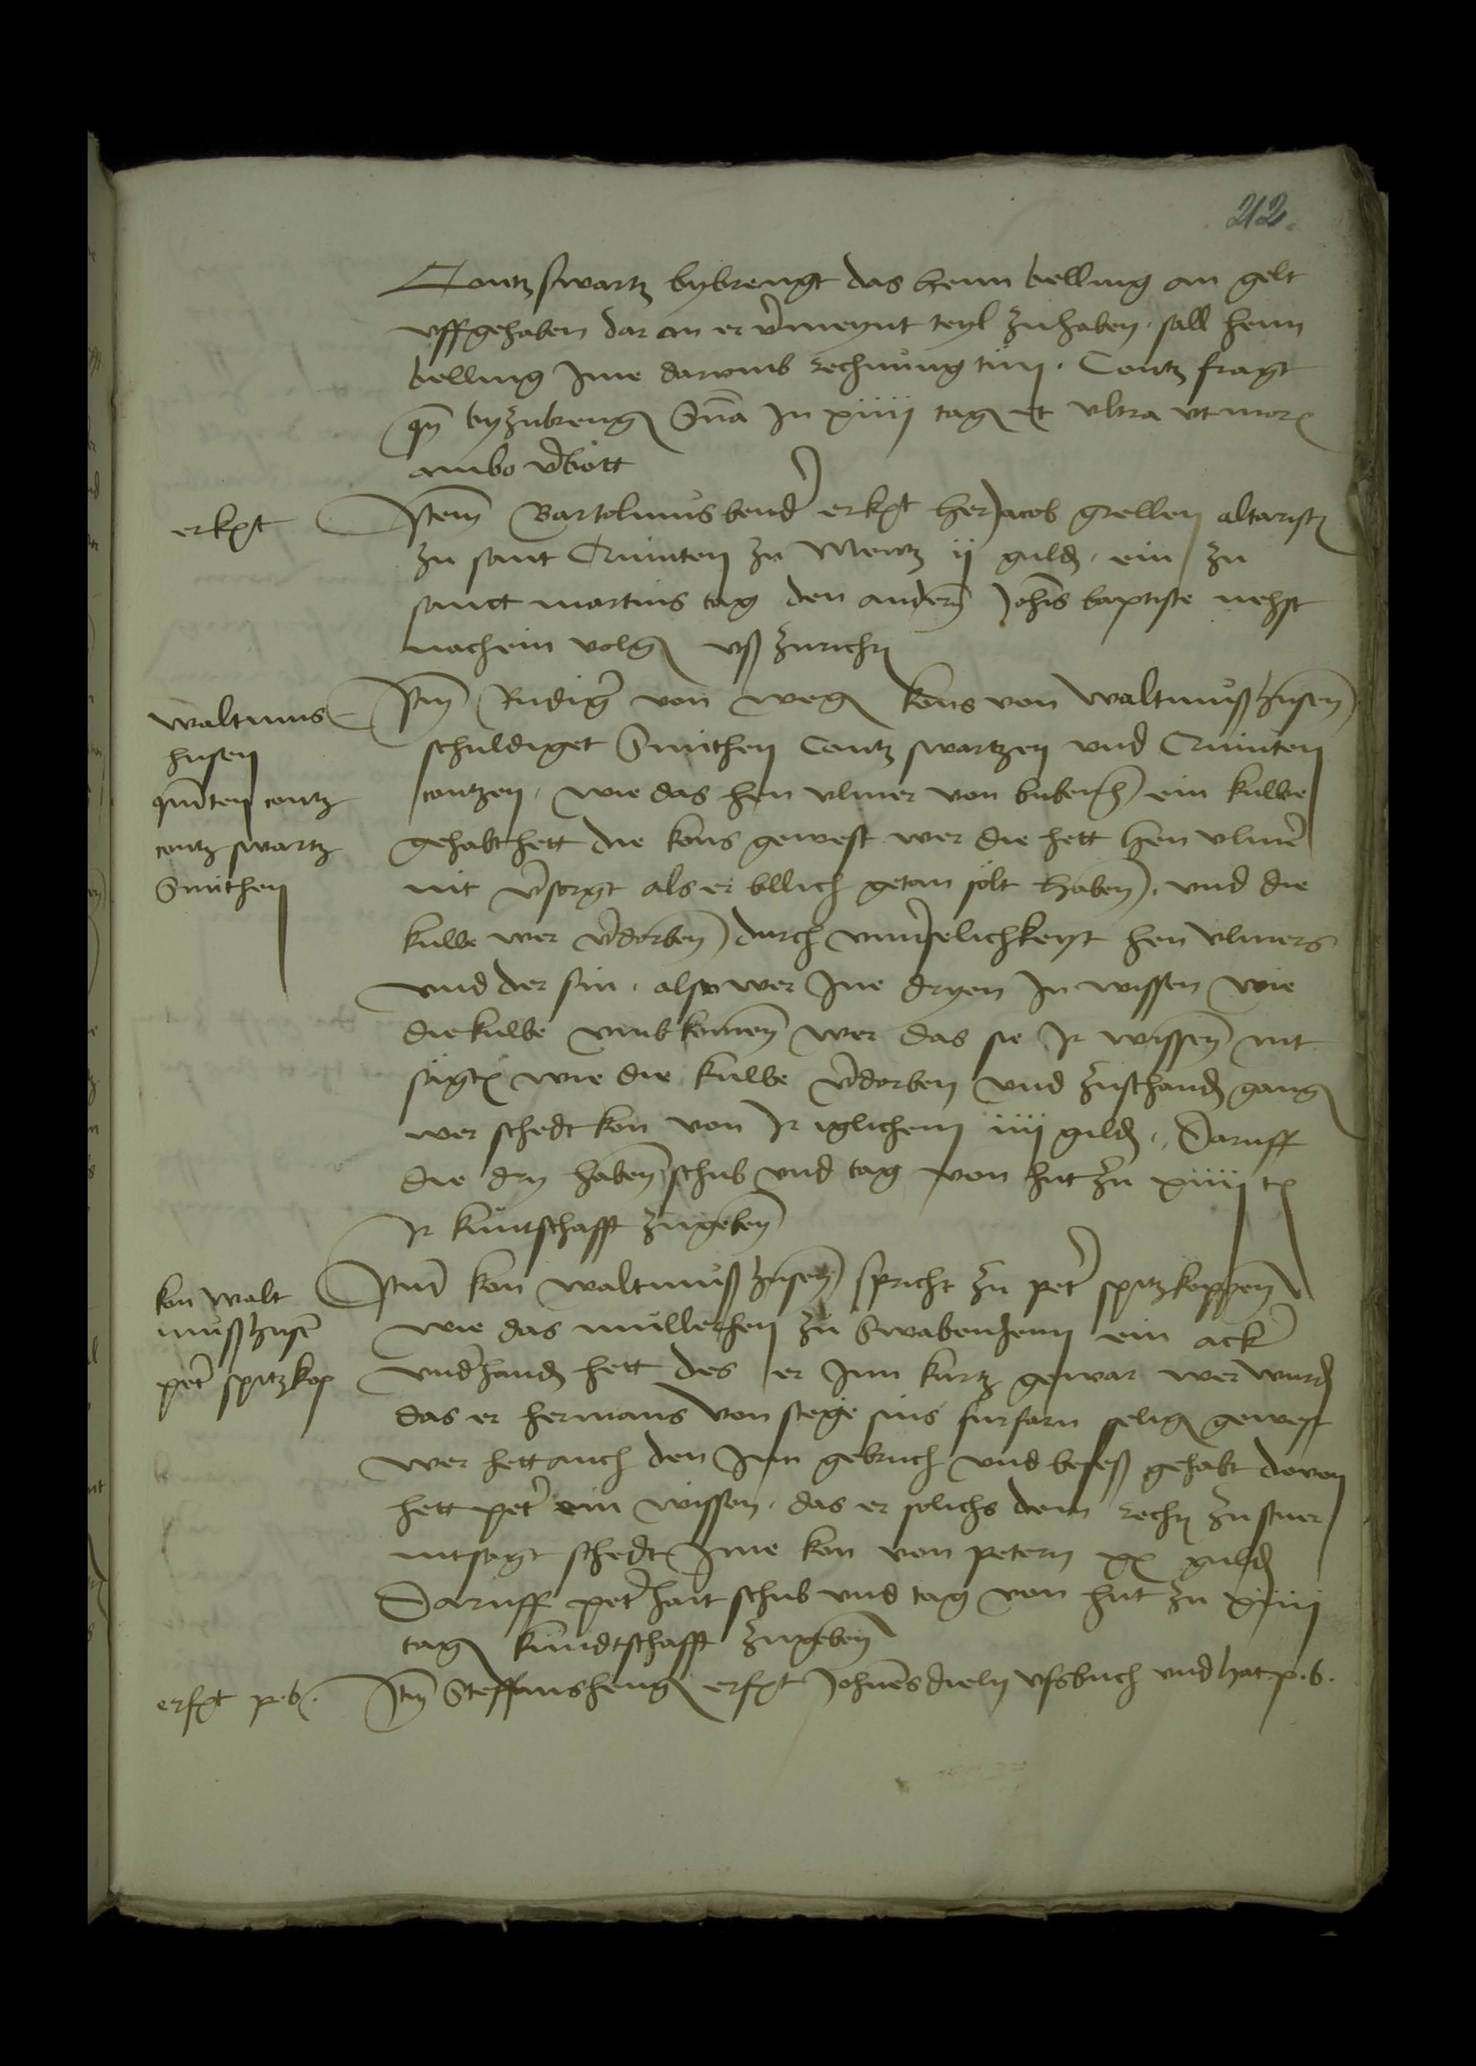 212.
Contz swartz bybrengt das henn belling an gelt
uffgehaben dar an er v'meynt teyl zuhaben. sall henn
belling Ime darumb rechnung tun. Contz fragt
qn byzubrengen Sna In xiiii tagen et ultra ut mor
ambo v'bott
erkt
Item Bartolmus bend' erkt her Jacob grellen altarist
zu sant Quinten zu Mentz ii guld. ein zu
sanct martins tag den andern Johis baptiste nehst
nachein volgen uß zurichn
waltmus
husen
quinten contz
contz swartz
Smithen
Item Rudig' von wegen kons von waltmußhusen
schuldiget Smithen Contz swartzen und Quinten
contzen. wie das hen ulmer von bubenh ein kulbe
gehabt hett die kons gewest wer die hett hen ulmer
nit v'sorgt als er bllich getan solt haben. und die
kulbe wer v'dorben durch unv'selichkeyt hen ulmers
und der sin. also wer Ine dryen In wissen wie
die kulbe umbkomen wer das sie Ir wissen nit
sagt wie die kulbe v'dorben und zuschanden gangen
wer schedt kon von Ir iglichem iiii gild. Daruff
die dry haben schub und tag von hut zu xiiii t
Ir kuntschafft zugeben
kon walt
mußhusen
pet' spitzkop
Item kon waltmußhusen spricht zu pet' spitzkoppen
wie das mullerhen zu Swabenheim ein ack'
underhanden hett des er Inn kurtz gewar wer wurden
das er hermans von stege sins furfarn selig gewest
wer hett auch den Inn gebruch und beseß gehabt davon
hett pet' ein wissen. das er solichs dem rechn zu stuer
nit sagt schedt Ime kon von petern xx gulden
Daruff pet' hait schub und tag von hut zu xiiii
tagen kundtschafft zugeben
erft p.b.
Item Steffanshengen erft Johnes dieln ufsbuch und hat p.b.